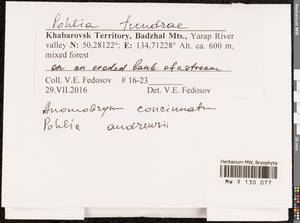 Pohlia tundrae
Khabarovsk Territory, Badzhal Mts., Yarap River
valley N: 50,28122°; E: 134,71228° Alt. ca. 600 m,
mixed forest
on an eroded bank of a stream
Coll. V.E. Fedosov # 16-23
29.VII.2016 Det. V.E. Fedosov
Anomobryum concinnatum
Pohlia andrewsii
Herbarium MW, Bryophyta
MW 9 130 077